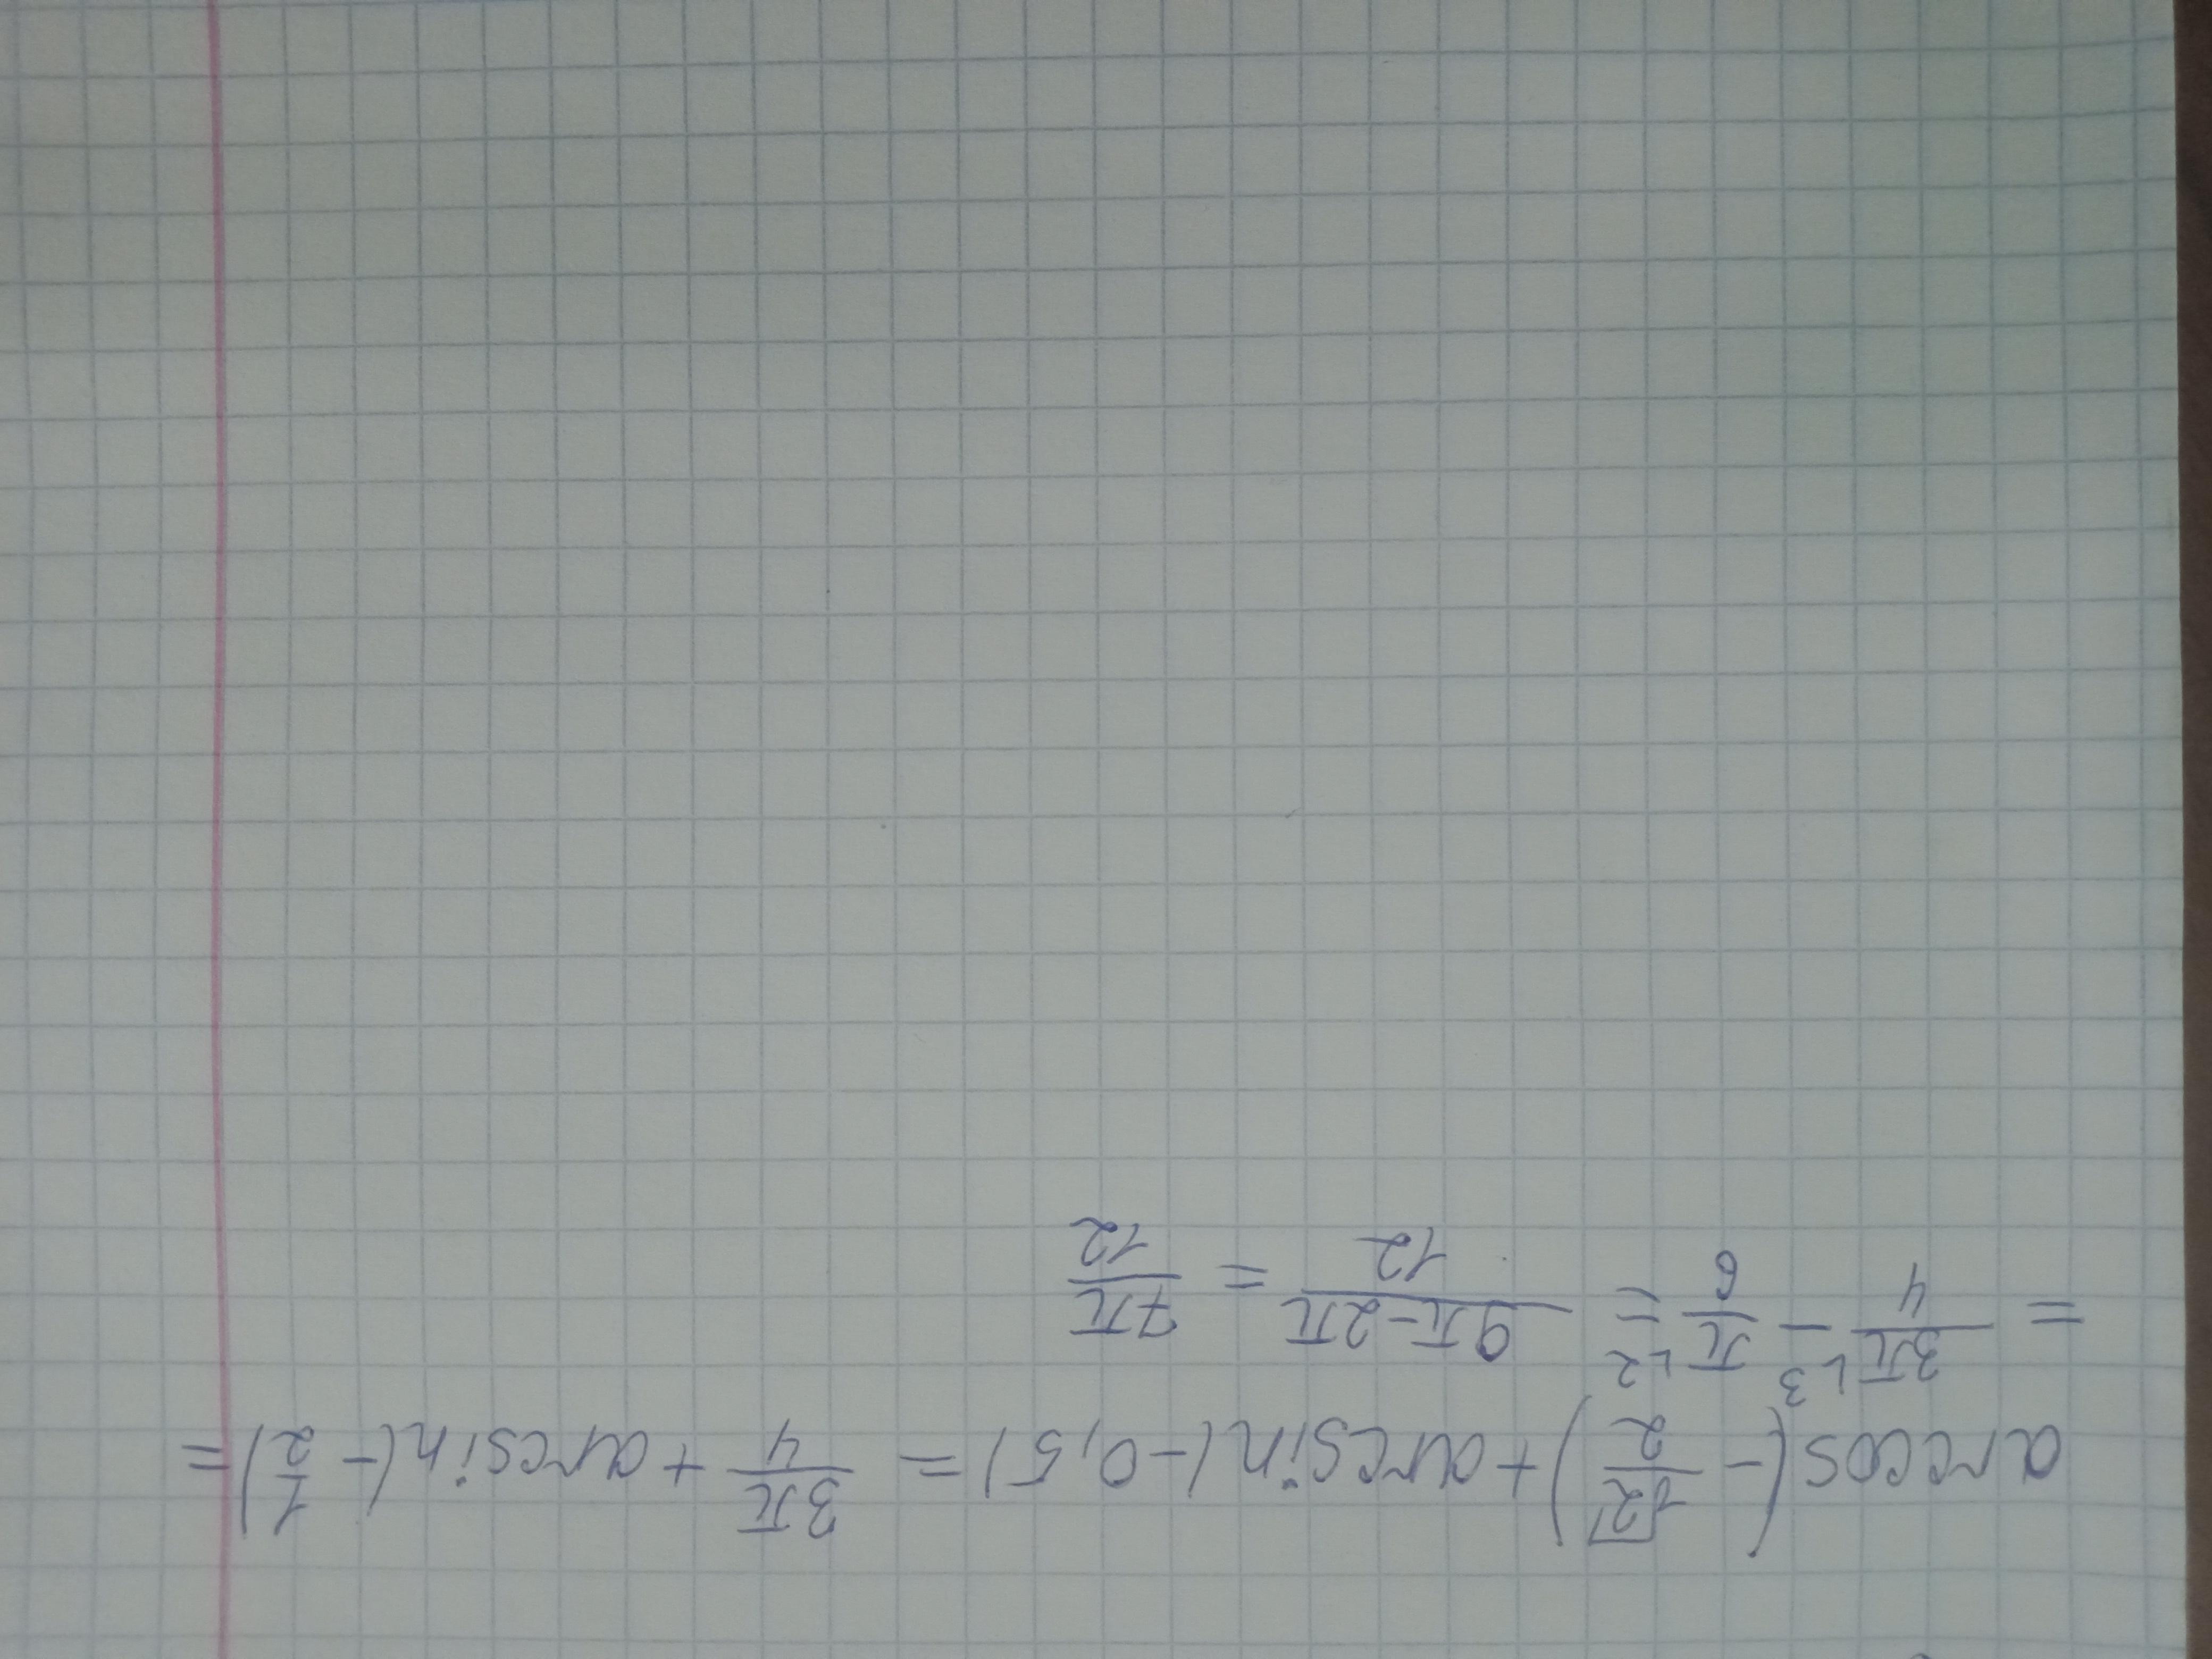 arccos(-√2/2)+arcsin(-0,5)=3π/4+arcsin(-1/2)=
=3π⌞3/4-π⌞2/6=9π-2π/12=7π/12